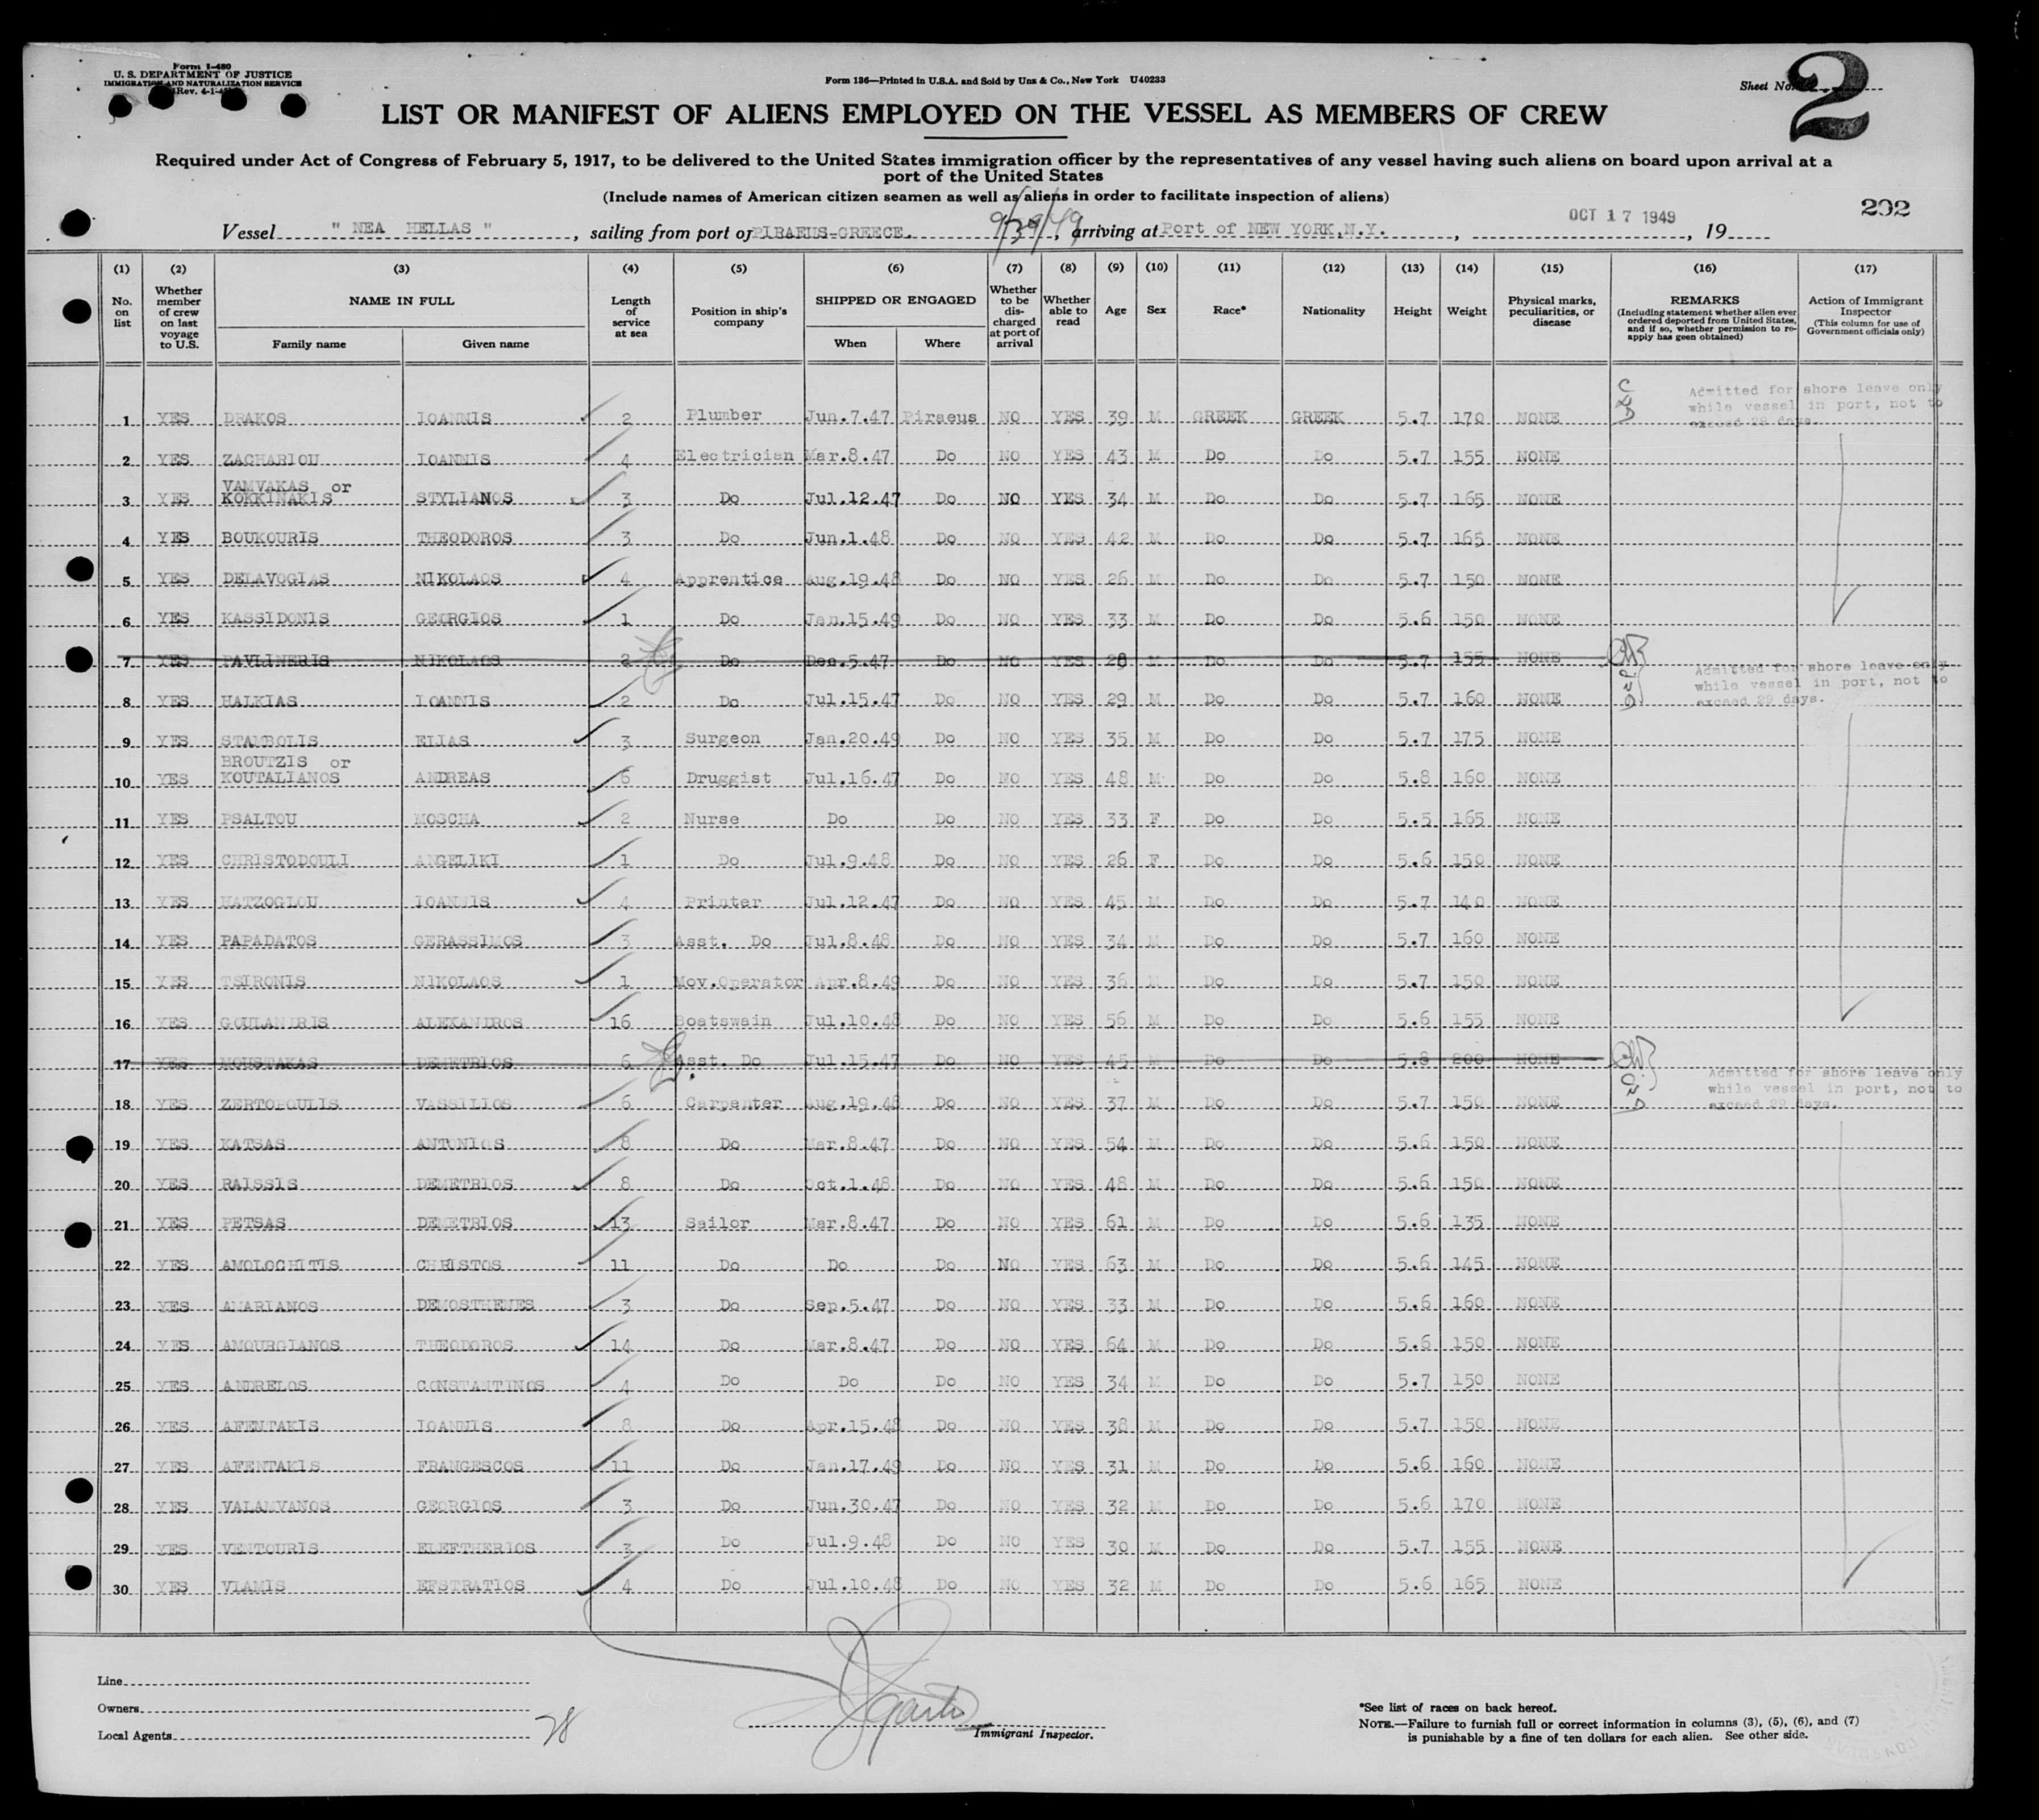 Form I-480
U. S. DEPARTMENT OF JUSTICE
IMMIGRATION AND NATURALIZATION SERVICE
Form 136—Printed in U.S.A. and Sold by Unz & Co., New York U40233
Sheet No. 2
LIST OR MANIFEST OF ALIENS EMPLOYED ON THE VESSEL AS MEMBERS OF CREW
Required under Act of Congress of February 5, 1917, to be delivered to the United States immigration officer by the representatives of any vessel having such aliens on board upon arrival at a
port of the United States
(Include names of American citizen seamen as well as aliens in order to facilitate inspection of aliens)
292
Vessel " NEA HELLAS ", sailing from port of PIRAEUS-GREECE. 9/30/49, arriving at Port of NEW YORK,N.Y., OCT 17 1949, 19
(1) (2) (3) (4) (5) (6) (7) (8) (9) (10) (11) (12) (13) (14) (15) (16) (17)
No. on list
Whether member of crew on last voyage to U.S.
NAME IN FULL
Family name Given name
Length of service at sea
Position in ship's company
SHIPPED OR ENGAGED
When Where
Whether to be discharged at port of arrival
Whether able to read
Age Sex Race* Nationality Height Weight
Physical marks, peculiarities, or disease
REMARKS
(Including statement whether alien ever ordered deported from United States, and if so, whether permission to reapply has geen obtained)
Action of Immigrant Inspector
(This column for use of Government officials only)
Admitted for shore leave only
while vessel in port, not to
exceed 29 days.
1 YES DRAKOS IOANNIS 2 Plumber Jun.7.47 Piraeus NO YES 39 M GREEK GREEK 5.7 170 NONE
2 YES ZACHARIOU IOANNIS 4 Electrician Mar.8.47 Do NO YES 43 M Do Do 5.7 155 NONE
VAMVAKAS or
3 YES KOKKINAKIS STYLIANOS 3 Do Jul.12.47 Do NO YES 34 M Do Do 5.7 165 NONE
4 YES BOUKOURIS THEODOROS 3 Do Jun.1.48 Do NO YES 42 M Do Do 5.7 165 NONE
5 YES DELAVOGIAS NIKOLAOS 4 Apprentice Aug.19.48 Do NO YES 26 M Do Do 5.7 150 NONE
6 YES KASSIDONIS GEORGIOS 1 Do Jan.15.49 Do NO YES 33 M Do Do 5.6 150 NONE
7 YES PAVLINERIS NIKOLAOS 2 Do Dec.5.47 Do NO YES 28 M Do Do 5.7 155 NONE
Admitted for shore leave only
while vessel in port, not to
exceed 29 days.
8 YES HALKIAS IOANNIS 2 Do Jul.15.47 Do NO YES 29 M Do Do 5.7 160 NONE
9 YES STAMBOLIS ELIAS 3 Surgeon Jan.20.49 Do NO YES 35 M Do Do 5.7 175 NONE
BROUTZIS or
10 YES KOUTALIANOS ANDREAS 6 Druggist Jul.16.47 Do NO YES 48 M Do Do 5.8 160 NONE
11 YES PSALTOU MOSCHA 2 Nurse Do Do NO YES 33 F Do Do 5.5 165 NONE
12 YES CHRISTODOULI ANGELIKI 1 Do Jul.9.48 Do NO YES 26 F Do Do 5.6 150 NONE
13 YES HATZOGLOU IOANNIS 4 Printer Jul.12.47 Do NO YES 45 M Do Do 5.7 140 NONE
14 YES PAPADATOS GERASSIMOS 3 Asst. Do Jul.8.48 Do NO YES 34 M Do Do 5.7 160 NONE
15 YES TSIRONIS NIKOLAOS 1 Mov.Operator Apr.8.49 Do NO YES 36 M Do Do 5.7 150 NONE
16 YES GOULANDRIS ALEXANDROS 16 Boatswain Jul.10.48 Do NO YES 56 M Do Do 5.6 155 NONE
17 YES MOUSTAKAS DEMETRIOS 6 Asst. Do Jul.15.47 Do NO YES 45 M Do Do 5.8 200 NONE
Admitted for shore leave only
while vessel in port, not to
exceed 29 days.
18 YES ZERTOPOULIS VASSILIOS 6 Carpenter Aug.19.48 Do NO YES 37 M Do Do 5.7 150 NONE
19 YES KATSAS ANTONIOS 8 Do Mar.8.47 Do NO YES 54 M Do Do 5.6 150 NONE
20 YES RAISSIS DEMETRIOS 8 Do Oct.1.48 Do NO YES 48 M Do Do 5.6 150 NONE
21 YES PETSAS DEMETRIOS 13 Sailor Mar.8.47 Do NO YES 61 M Do Do 5.6 135 NONE
22 YES AMOLOCHITIS CHRISTOS 11 Do Do Do NO YES 63 M Do Do 5.6 145 NONE
23 YES AMARIANOS DEMOSTHENES 3 Do Sep.5.47 Do NO YES 33 M Do Do 5.6 160 NONE
24 YES AMOURGIANOS THEODOROS 14 Do Mar.8.47 Do NO YES 64 M Do Do 5.6 150 NONE
25 YES ANDRELOS CONSTANTINOS 4 Do Do Do NO YES 34 M Do Do 5.7 150 NONE
26 YES AFENTAKIS IOANNIS 8 Do Apr.15.48 Do NO YES 38 M Do Do 5.7 150 NONE
27 YES AFENTAKIS FRANGESCOS 11 Do Jan.17.49 Do NO YES 31 M Do Do 5.6 160 NONE
28 YES VALAMVANOS GEORGIOS 3 Do Jun.30.47 Do NO YES 32 M Do Do 5.6 170 NONE
29 YES VENTOURIS ELEFTHERIOS 3 Do Jul.9.48 Do NO YES 30 M Do Do 5.7 155 NONE
30 YES VLAMIS EFSTRATIOS 4 Do Jul.10.48 Do NO YES 32 M Do Do 5.6 165 NONE
Line
Owners
Local Agents 28
Immigrant Inspector.
*See list of races on back hereof.
NOTE.—Failure to furnish full or correct information in columns (3), (5), (6), and (7)
is punishable by a fine of ten dollars for each alien. See other side.